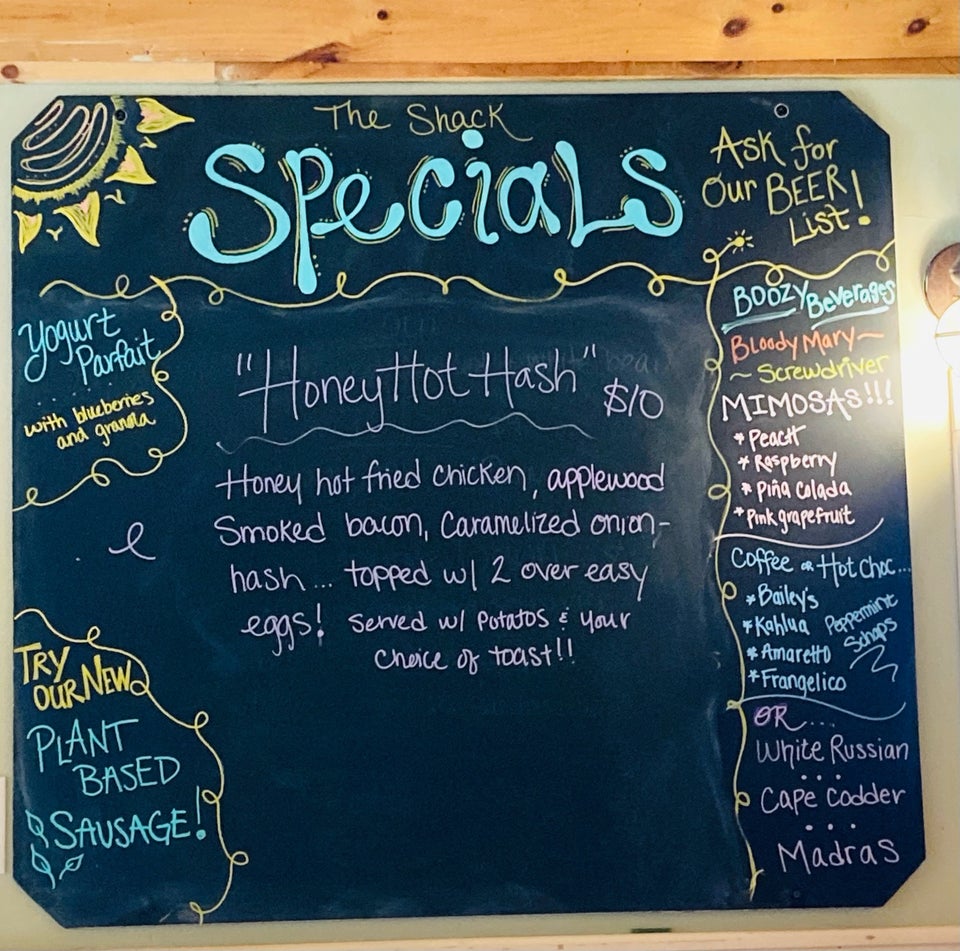 The Shack
SPecials
Ask for
Our BEER
List!
Yogurt
Parfait
with blueberries
and granola
TRY
OUR NEW
PLANT
BASED
SAUSAGE!
"Honey Hot Hash" $10
Honey hot fried chicken, applewood
Smoked bacon, Caramelized onion-
hash... topped w/ 2 over easy
eggs! Served w/ Potatos & Your
Choice of toast!!
BOOZY Beverages
Bloody Mary ~
~ Screwdriver
MIMOSAS!!!
* PeacH
* Raspberry
* Piña Colada
* Pink grapefruit
Coffee OR Hot Choc...
* Bailey's
* Kahlua
* Amaretto
* Frangelico
Peppermint
Schaps
OR....
White Russian
Cape Codder
Madras